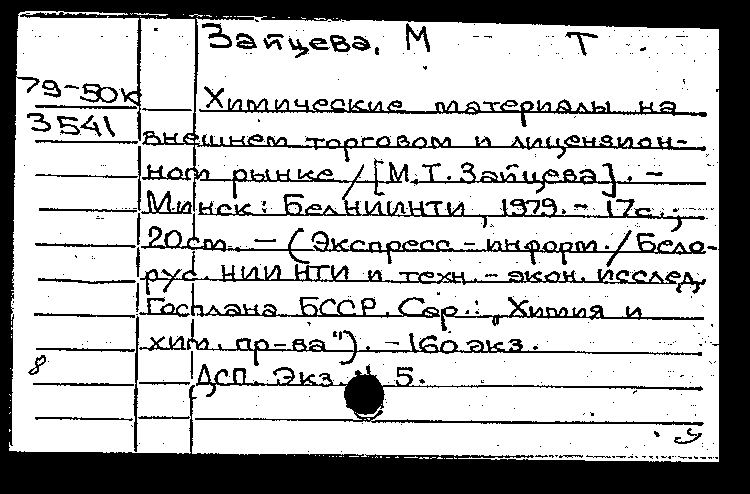 Зайцева, М Т
79-50к Химические материалы на
3541 внешнем торговом и лицензион-
ном рынке / [М.Т. Зайцева]. -
Минск: БелНИИНТИ, 1979. - 17с.;
20 см. - (Экспресс-информ. / Бело-
рус. НИИ НТИ и техн.-экон. исслед.
Госплана БССР. Сер.: "Химия и
хим. пр-ва"). - 160 экз.
8 ДСП. Экз. 5.